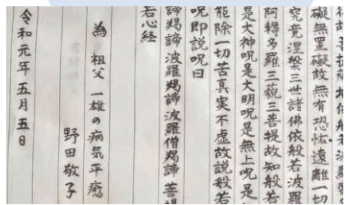 礙無罣礙故無有恐怖遠離一切
究竟涅槃三世諸佛依般若波羅
阿耨多羅三藐三菩提故知般若
是大神呪是大明呪是無上呪是
能除一切苦真実不虚故説般若
呪即説呪曰
諦羯諦波羅羯諦波羅僧羯諦菩提
若心経
為 祖父 一雄の病気平癒
野田敬子
令和元年五月五日